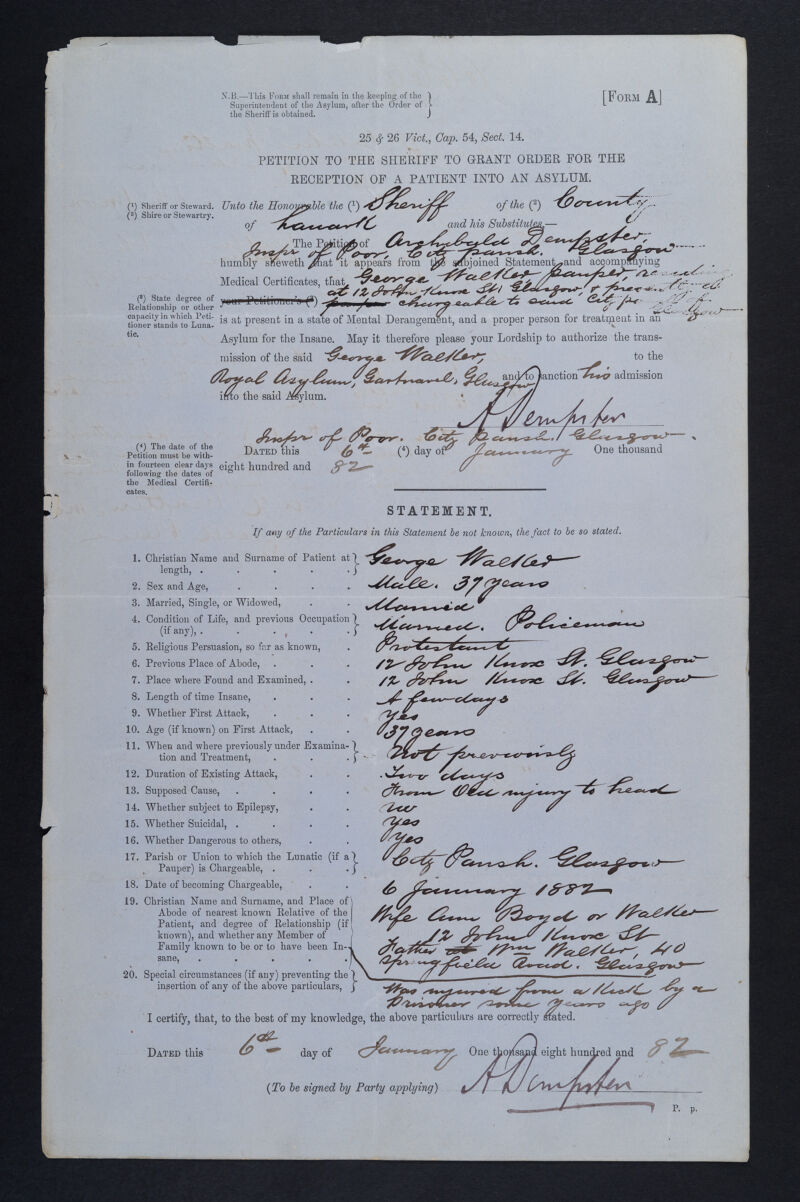 N.B.—This Form shall remain in the keeping of the
Superintendent of the Asylum, after the Order of
the Sheriff is obtained.
[Form A]
25 & 26 Vict., Cap. 54, Sect. 14.
PETITION TO THE SHERIFF TO GRANT ORDER FOR THE
RECEPTION OF A PATIENT INTO AN ASYLUM.
(1) Sheriff or Steward.
(2) Shire or Stewartry.
Unto the Honourable the (1) Sheriff of the (2) County
of Lanark and his Substitutes,—
The Petition of Archibald Dempster
Inspr of Poor, City parish. Glasgow
humbly sheweth that it appears from the subjoined Statement and accompanying
Medical Certificates, that George Walker pauper, residing
at 12 John Knox St. Glasgow, & presently
(3) State degree of
Relationship or other
capacity in which Peti-
tioner stands to Luna-
tic.
your Petitioner's (3) pauper chargeable to said City parish of
Glasgow
is at present in a state of Mental Derangement, and a proper person for treatment in an
Asylum for the Insane. May it therefore please your Lordship to authorize the trans-
mission of the said George Walker, to the
Royal Asylum, Gartnavel, Glasgow and to sanction his admission
into the said Asylum.
A Dempster
Inspr of Poor. City Parish. Glasgow.
(4) The date of the
Petition must be with-
in fourteen clear days
following the dates of
the Medical Certifi-
cates.
Dated this 6th (4) day of January One thousand
eight hundred and 82
STATEMENT.
If any of the Particulars in this Statement be not known, the fact to be so stated.
1. Christian Name and Surname of Patient at
length, . . . . . George Walker
2. Sex and Age, . . . . Male. 37 years
3. Married, Single, or Widowed, . . Married
4. Condition of Life, and previous Occupation
(if any), . . . . . Married. Policeman
5. Religious Persuasion, so far as known, . Protestant
6. Previous Place of Abode, . . . 12 John Knox St. Glasgow
7. Place where Found and Examined, . . 12 John Knox St. Glasgow
8. Length of time Insane, . . . A few days
9. Whether First Attack, . . . Yes
10. Age (if known) on First Attack, . . 37 years
11. When and where previously under Examina-
tion and Treatment, . . . . Not previously
12. Duration of Existing Attack, . . Two days
13. Supposed Cause, . . . . From Old injury to head
14. Whether subject to Epilepsy, . . no
15. Whether Suicidal, . . . . Yes
16. Whether Dangerous to others, . . Yes
17. Parish or Union to which the Lunatic (if a
Pauper) is Chargeable, . . . City Parish. Glasgow
18. Date of becoming Chargeable, . . 6 January 1882
19. Christian Name and Surname, and Place of
Abode of nearest known Relative of the
Patient, and degree of Relationship (if
known), and whether any Member of
Family known to be or to have been In-
sane, . . . . . .
Wife Ann Boyd or Walker
12 John Knox St
Father Wm Walker, 40
Springfield Road. Glasgow
20. Special circumstances (if any) preventing the
insertion of any of the above particulars,
Was injured from a Kick by a
Prisoner some years ago
I certify, that, to the best of my knowledge, the above particulars are correctly stated.
Dated this 6th day of January One thousand eight hundred and 82
(To be signed by Party applying) A Dempster
P. p.